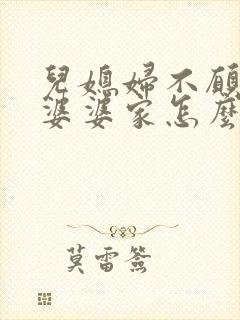 兒媳婦不願
婆婆家怎麼
莫雷簽